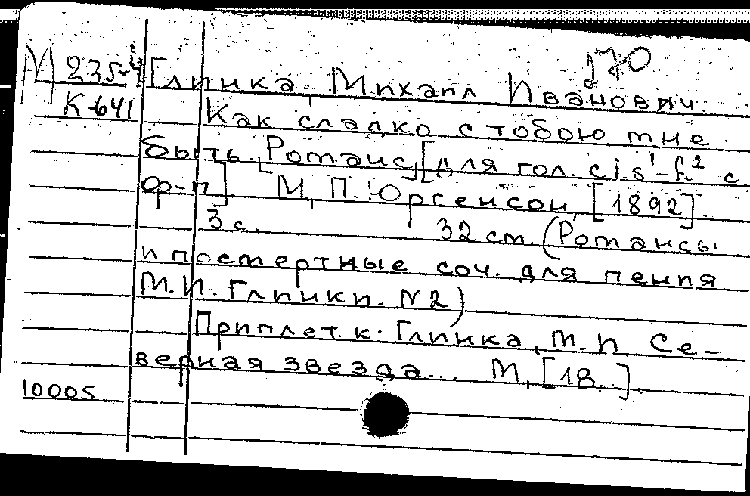 170
М 235-4 Глинка, Михаил Иванович.
К-641 Как сладко с тобою мне
быть. Романс. [Для гол. cis¹-f² с
ф-п]. М., П. Юргенсон, [1892].
3 с. 32 см (Романсы
и посмертные соч. для пения
М.И. Глинки. N2)
Приплет. к: Глинка, М.И. Се-
верная звезда... М., [18..].
10005